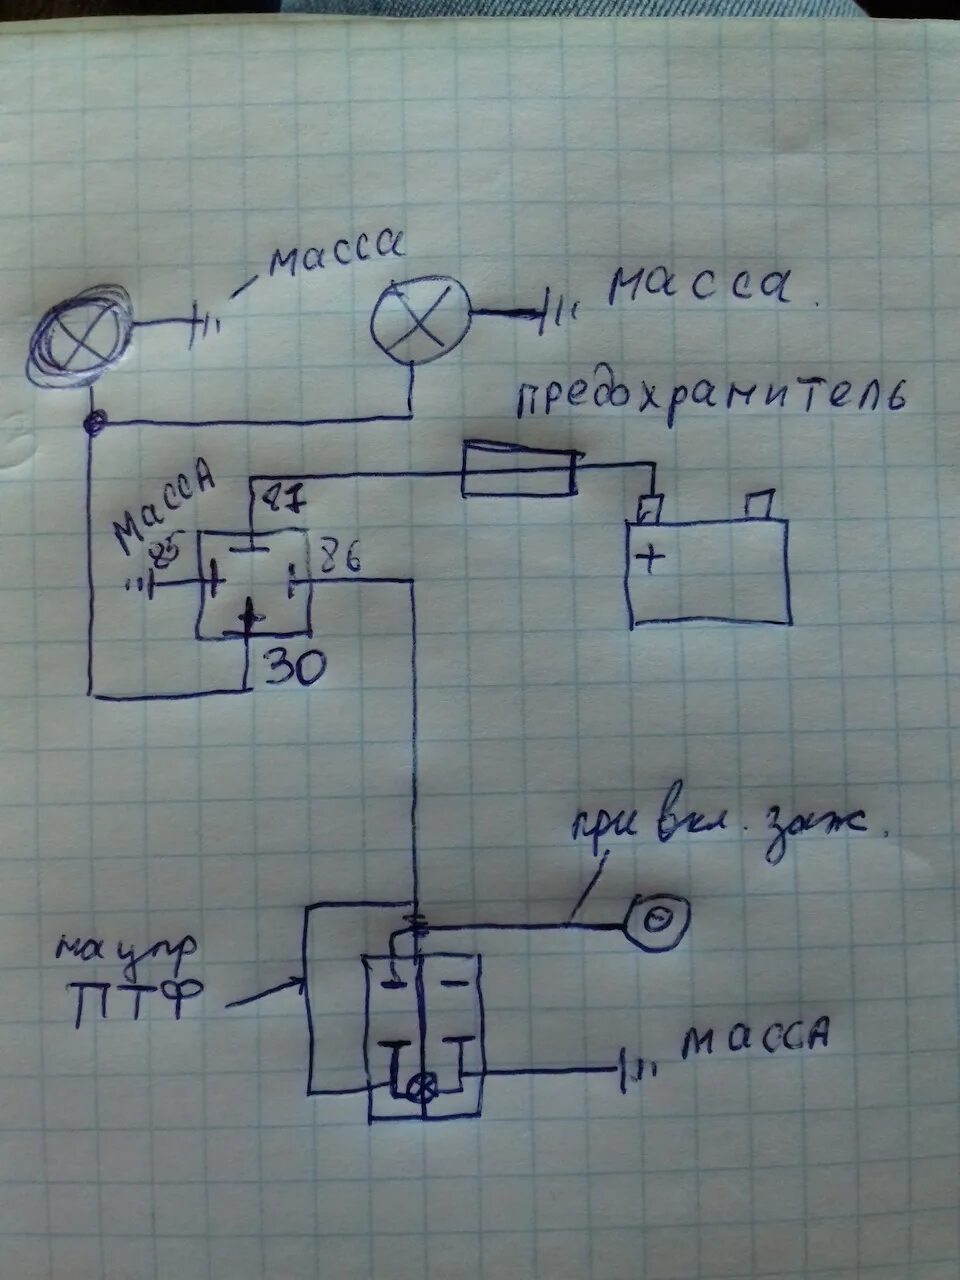 масса
масса.
предохранитель
масса
87
85
86
+
30
при вкл. заж.
на упр
ПТФ
масса